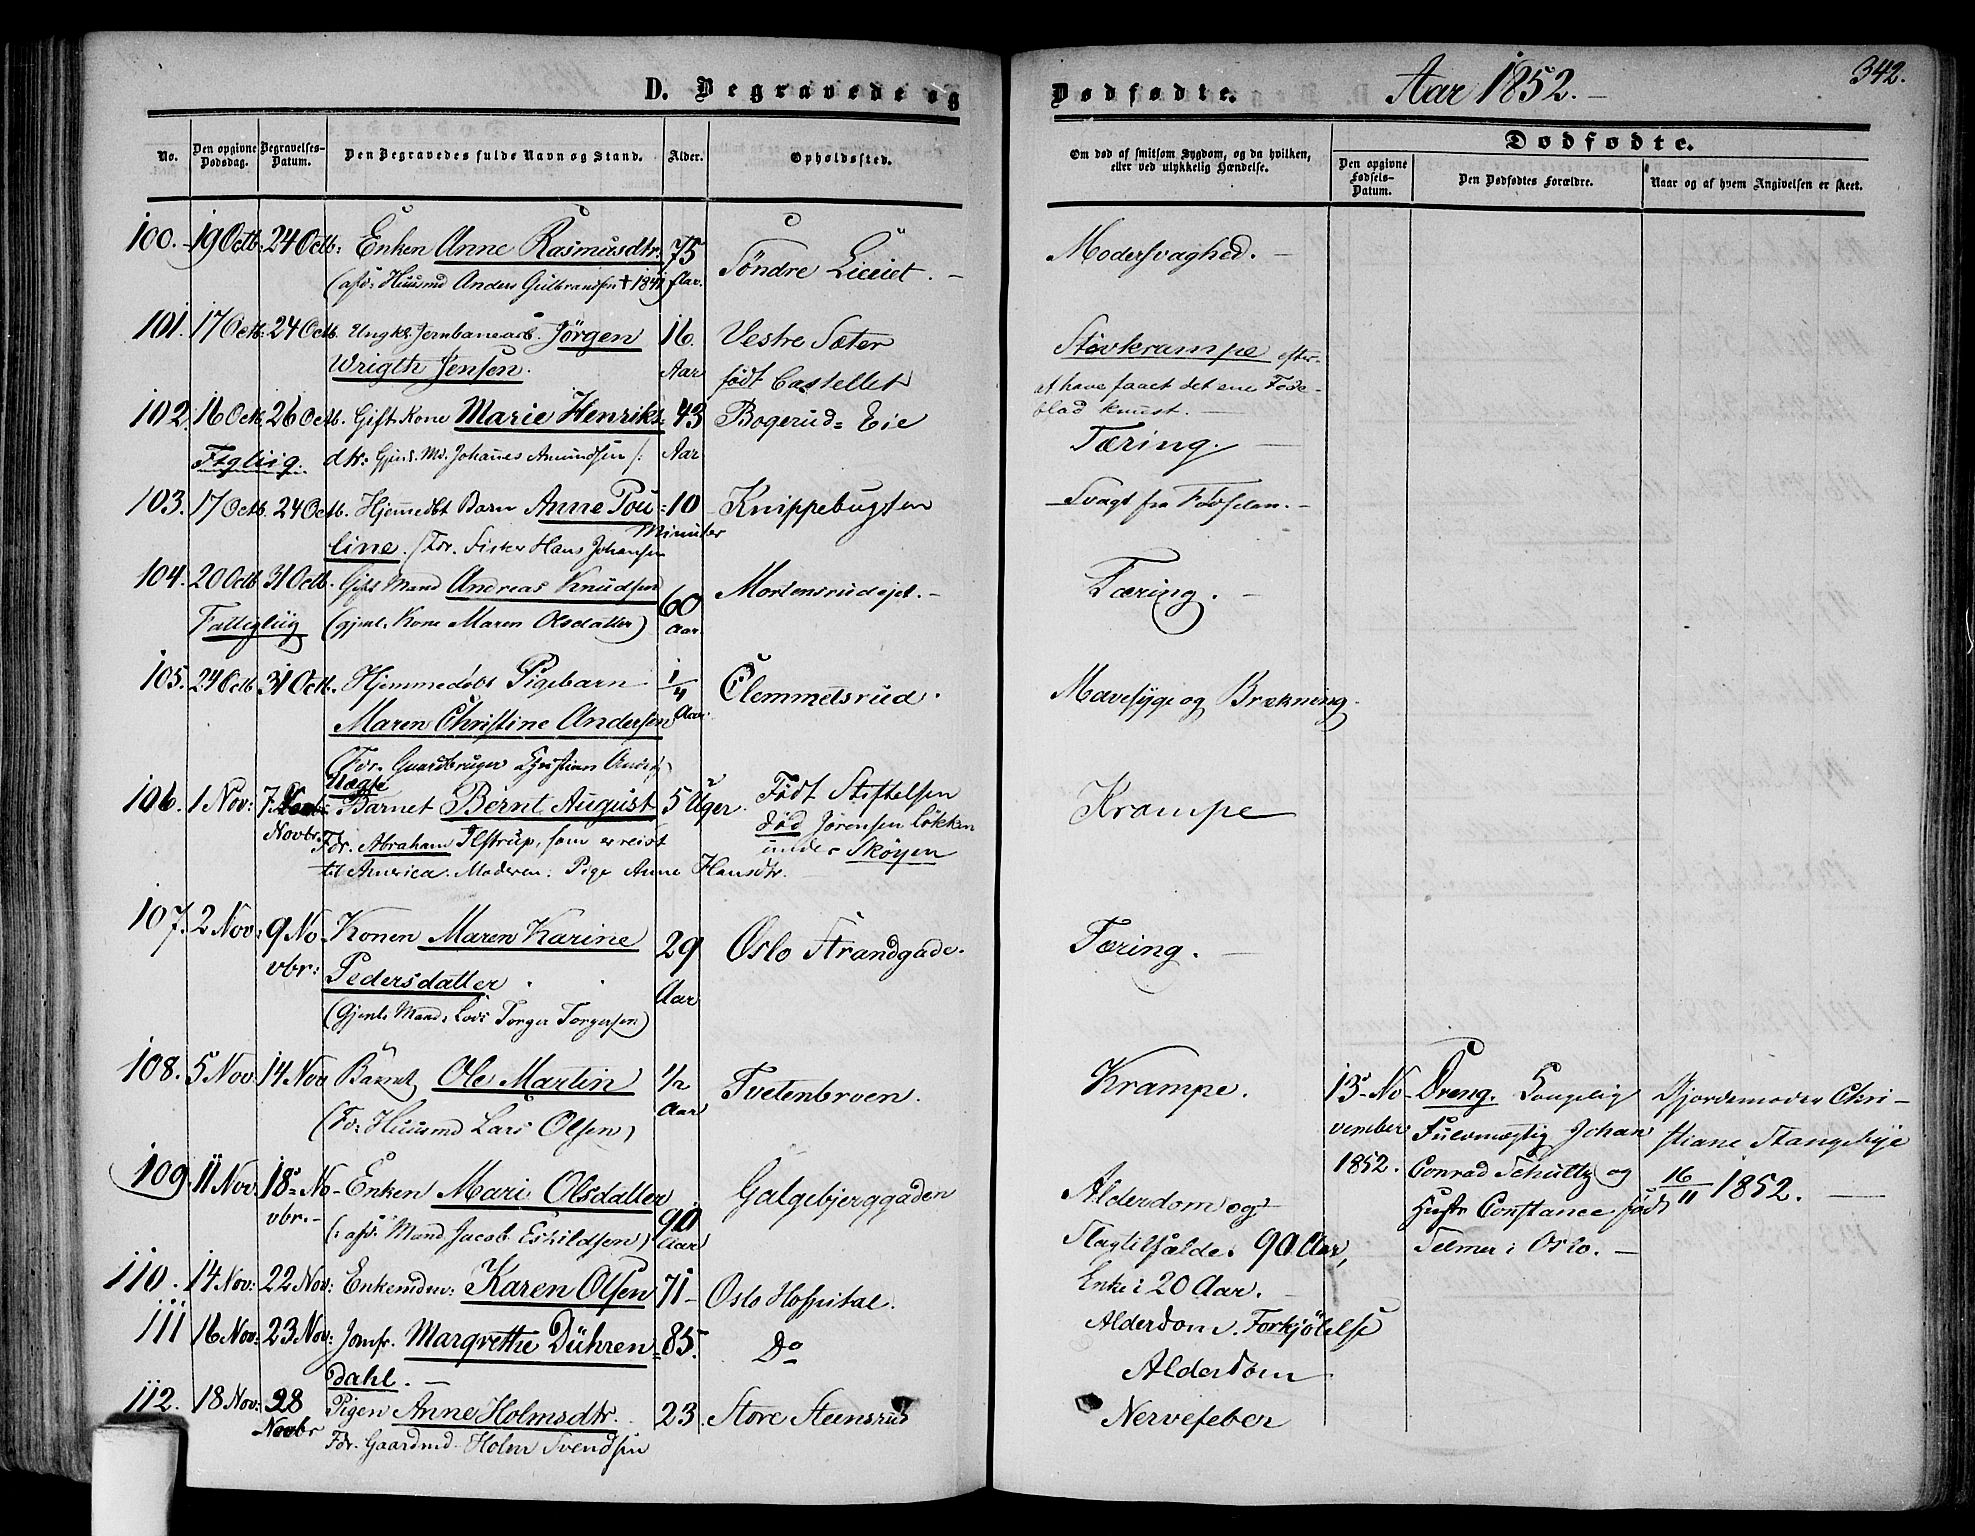 D. Begravede og
Dødfødte. Aar 1852. 342.
No. Den opgivne Dødsdag. Begravelses-Datum. Den Begravedes fulde Navn og Stand. Alder. Opholdssted.
Om død af smitsom Sygdom, og da hvilken, eller ved ulykkelig Hændelse.
Dødfødte.
Den opgivne Fødsels-Datum. Den Dødfødtes Forældre. Naar og af hvem Angivelsen er skeet.
100. 19 Octb: 24 Octb: Enken Anne Rasmusdtr. 75 Söndre
(afd: Huusmd Anders Gulbrandsen + 1841) Aar.
101. 17 Octb: 24 Octb. Ungk. Jernbanearb. Jörgen 16. Vestre Sæter
Wrigth Jensen. Aar födt Castellet
efter
at have faaet det ene Fode-
blad knust.
102. 16 Octb. 26 Octb. Gift Kone Marie Henriks- 43 Bogerud-Eie
dtr: Md. Johanes Amundsen Aar
Tæring.
103. 17 Octb. 24 Octb. Hjemedbt Barn Anne Pou- 10 Knippebugten
line. (Fdr. Fisker Hans Johansen Minuter
Svagt fra Födselen.
104. 20 Octb 31 Octb. Gift Mand Andreas Knudsen 60 Mortensrudejet.
Fattigliig (gjenl. Kone Maren Olsdatter) Aar
Tæring.
105. 24 Octb 31 Octb. Hjemmedöbt Pigebarn 1/4 Clemmetsrud.
Maren Christine Andersen Aar.
(Fdr. Gaardbruger Christian
Mavesyge og Brækning.
106. 1 Nov: 7 Novbr. Uægte Barnet Bernt August 5 Uger. Födt Stiftelsen
Fdr. Abraham Ilstrup, som er reist död Jörensen lökken
til America. Moderen: Pige Anne Hansdtr. under Sköyen
Krampe
107. 2 Nov: 9 No- Konen Maren Karine 29 Oslo Strandgade.
vbr: Pedersdatter Aar
(Gjenl. Mand: Lods Torger Torgersen)
Tæring.
108. 5 Nov: 14 Nov Barnet Ole Martin 1/2 Tvetenbroen.
(Fdr Huusmd Lars Olsen) Aar
Krampe.
13 No- Dreng. Kongelig Gjordemoder Chri-
vember Fuldmægtig Johan stiane Stangebye
1852. Conrad Schultz og 16/11 1852.
Hustr Constance född
Telmer i Oslo.
109. 11 Nov. 18 No- Enken Mari Olsdatter 90 Galgebjerggaden
vbr. (: afd. Mand Jacob Eskildsen) Aar
Alderdom og
Slagtilfælde. 90 Aar,
Enke i 20 Aar.
110. 14 Nov: 22 Nov: Enkemdm: Karen Olsen 71 Oslo Hospital.
Alderdom. Forkjölelse
111 16 Nov: 23 Nov: Jomfr. Margrethe Dühren- 85. Do
dahl.
Alderdom
112. 18 Nov: 28 Pigen Anne Holmsdtr. 23. Store Steensrud
Novbr Fdr. Gaardmd. Holm Svendsen
Nervefeber